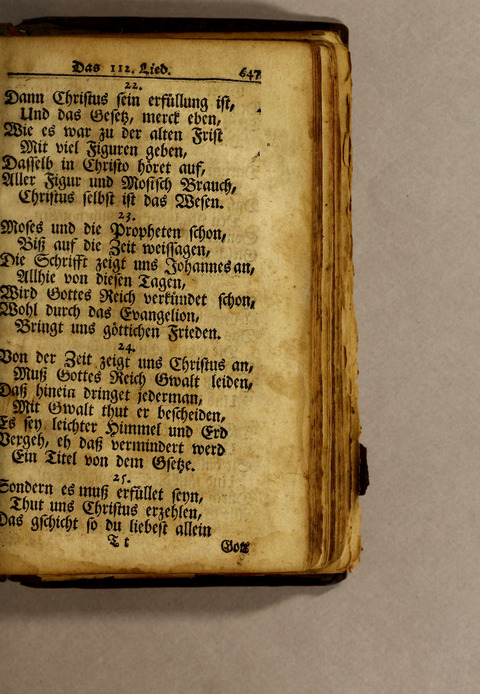 Das 112. Lied. 647
22.
Dann Christus sein erfüllung ist,
Und das Gesetz, merck eben,
Wie es war zu der alten Frist
Mit viel Figuren geben,
Dasselb in Christo höret auf,
Aller Figur und Mosisch Brauch,
Christus selbst ist das Wesen.
23.
Moses und die Propheten schon,
Biß auf die Zeit weissagen,
Die Schrifft zeigt uns Johannes an,
Allhie von diesen Tagen,
Wird Gottes Reich verkündet schon,
Wohl durch das Evangelion,
Bringt uns göttichen Frieden.
24.
Von der Zeit zeigt uns Christus an,
Muß Gottes Reich Gwalt leiden,
Daß hinein dringet jederman,
Mit Gwalt thut er bescheiden,
Es sey leichter Himmel und Erd
Vergeh, eh daß vermindert werd
Ein Titel von dem Gsetze.
25.
Sondern es muß erfüllet seyn,
Thut uns Christus erzehlen,
Das gschicht so du liebest allein
T t Gott